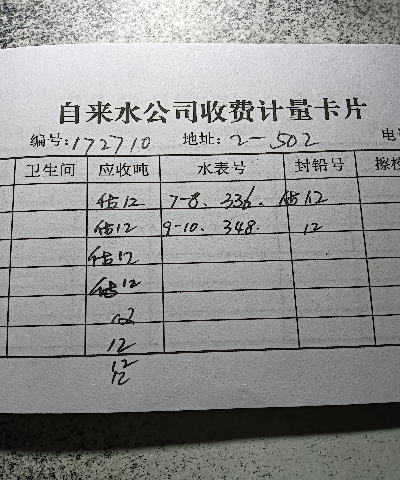 自来水公司收费计量卡片
编号:172710 地址:2-502 电
卫生间 应收吨 水表号 封铅号 擦
估12 7-8. 336. 估12
估12 9-10. 348. 12
估12
估12
12
12
12
12